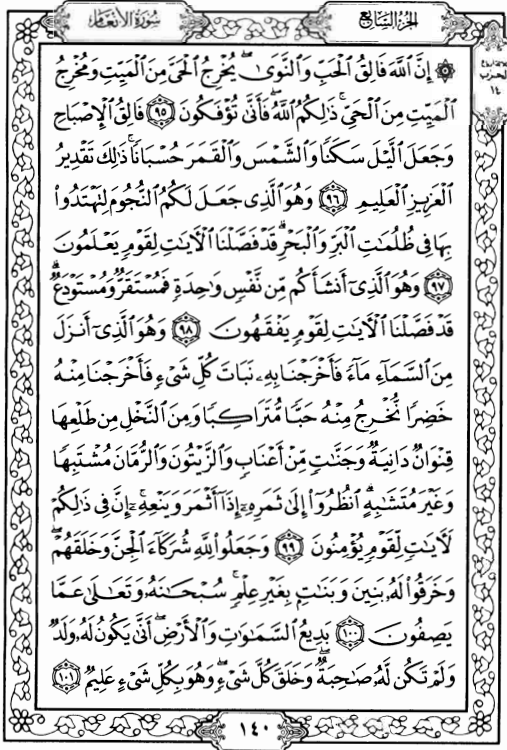 سُورَةُ الأَنْعَام
الجُزْءُ السَّابِع
الحزب
١٤
۞ إِنَّ ٱللَّهَ فَالِقُ ٱلْحَبِّ وَٱلنَّوَىٰ ۖ يُخْرِجُ ٱلْحَىَّ مِنَ ٱلْمَيِّتِ وَمُخْرِجُ
ٱلْمَيِّتِ مِنَ ٱلْحَىِّ ۚ ذَٰلِكُمُ ٱللَّهُ ۖ فَأَنَّىٰ تُؤْفَكُونَ ﴿٩٥﴾ فَالِقُ ٱلْإِصْبَاحِ
وَجَعَلَ ٱلَّيْلَ سَكَنًا وَٱلشَّمْسَ وَٱلْقَمَرَ حُسْبَانًا ۚ ذَٰلِكَ تَقْدِيرُ
ٱلْعَزِيزِ ٱلْعَلِيمِ ﴿٩٦﴾ وَهُوَ ٱلَّذِى جَعَلَ لَكُمُ ٱلنُّجُومَ لِتَهْتَدُوا۟
بِهَا فِى ظُلُمَٰتِ ٱلْبَرِّ وَٱلْبَحْرِ ۗ قَدْ فَصَّلْنَا ٱلْـَٔايَٰتِ لِقَوْمٍ يَعْلَمُونَ
﴿٩٧﴾ وَهُوَ ٱلَّذِىٓ أَنشَأَكُم مِّن نَّفْسٍ وَٰحِدَةٍ فَمُسْتَقَرٌّ وَمُسْتَوْدَعٌ ۗ
قَدْ فَصَّلْنَا ٱلْـَٔايَٰتِ لِقَوْمٍ يَفْقَهُونَ ﴿٩٨﴾ وَهُوَ ٱلَّذِىٓ أَنزَلَ
مِنَ ٱلسَّمَآءِ مَآءً فَأَخْرَجْنَا بِهِۦ نَبَاتَ كُلِّ شَىْءٍ فَأَخْرَجْنَا مِنْهُ
خَضِرًا نُّخْرِجُ مِنْهُ حَبًّا مُّتَرَاكِبًا وَمِنَ ٱلنَّخْلِ مِن طَلْعِهَا
قِنْوَانٌ دَانِيَةٌ وَجَنَّٰتٍ مِّنْ أَعْنَابٍ وَٱلزَّيْتُونَ وَٱلرُّمَّانَ مُشْتَبِهًا
وَغَيْرَ مُتَشَٰبِهٍ ۗ ٱنظُرُوٓا۟ إِلَىٰ ثَمَرِهِۦٓ إِذَآ أَثْمَرَ وَيَنْعِهِۦٓ ۚ إِنَّ فِى ذَٰلِكُمْ
لَءَايَٰتٍ لِّقَوْمٍ يُؤْمِنُونَ ﴿٩٩﴾ وَجَعَلُوا۟ لِلَّهِ شُرَكَآءَ ٱلْجِنَّ وَخَلَقَهُمْ ۖ
وَخَرَقُوا۟ لَهُۥ بَنِينَ وَبَنَٰتٍۭ بِغَيْرِ عِلْمٍ ۚ سُبْحَٰنَهُۥ وَتَعَٰلَىٰ عَمَّا
يَصِفُونَ ﴿١٠٠﴾ بَدِيعُ ٱلسَّمَٰوَٰتِ وَٱلْأَرْضِ ۖ أَنَّىٰ يَكُونُ لَهُۥ وَلَدٌ
وَلَمْ تَكُن لَّهُۥ صَٰحِبَةٌ ۖ وَخَلَقَ كُلَّ شَىْءٍ ۖ وَهُوَ بِكُلِّ شَىْءٍ عَلِيمٌ ﴿١٠١﴾
١٤٠